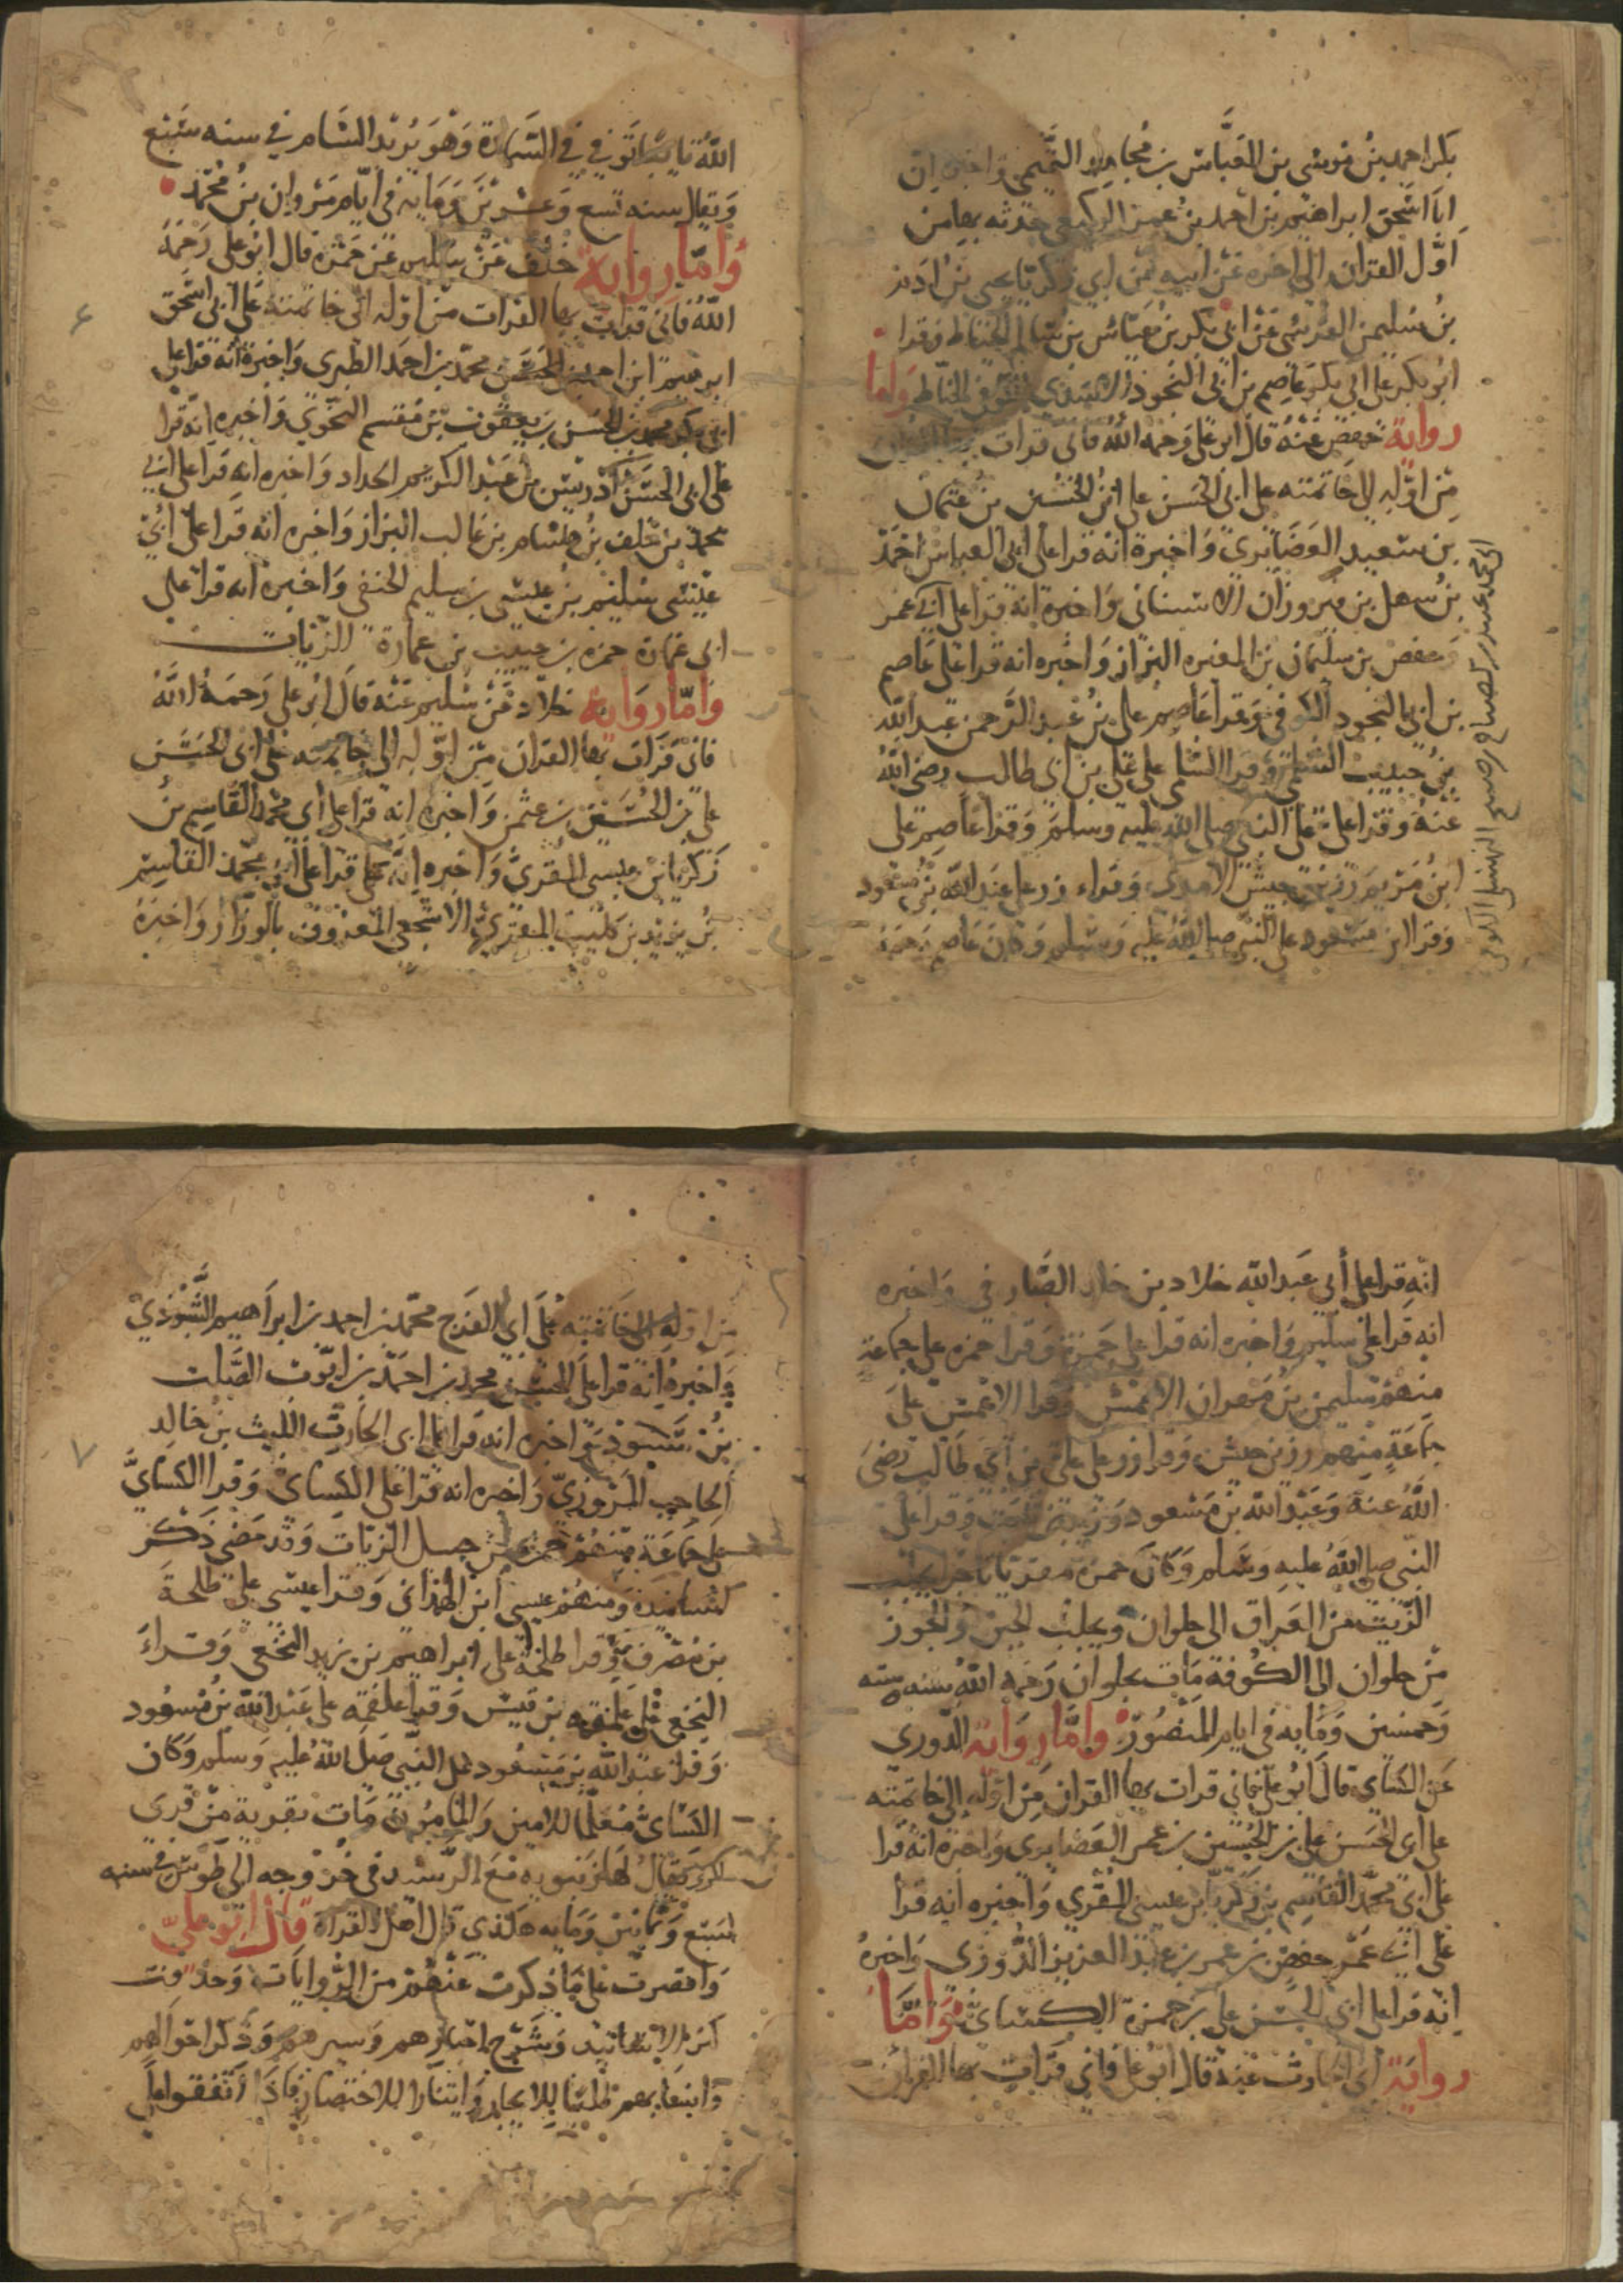 بكر احمد بن موسى بن العباس بن مجاهد التميمي واخبره ان
ابا اسحق ابراهيم بن احمد بن عمر الوكيعي حدثه بها من
اول القران الى اخره عن ابيه عن ابي زكريا يحيى بن ادم
بن سليمن القرشي عن ابي بكر بن عياش بن سالم الحناط وقرا
ابو بكر على ابي بكر عاصم بن ابي النجود الاسدي الحناط واما
رواية حفص عنه قال ابو علي رحمه الله فاني قرات بها القران
من اوله الى خاتمته على ابي الحسن علي ابن الحسين بن عثمان
بن سعيد الغضايري واخبره انه قرا على ابي العباس احمد
بن سهل بن فيروزان الاشناني واخبره انه قرا على
ابي محمد عبيد بن الصباح بن صبيح النهشلي الكوفي
ابي عمر
حفص بن سليمان بن المغيره البزاز واخبره انه قرا على عاصم
بن ابي النجود الكوفي وقرا عاصم على بن عبد الرحمن عبد الله
بن حبيب السلمي وقرا السلمي على علي بن ابي طالب رضي الله
عنه وقرا علي على النبي صلى الله عليه وسلم وقرا عاصم على
ابن مريم زر بن حبيش الاسدي وقراء زر على عبد الله بن مسعود
وقرا ابن مسعود على النبي صلى الله عليه وسلم وكان عاصم رحمه
الله توفي في السماوة وهو يريد الشام في سنه سبع
ويقال سنه تسع وعشرين ومايه في ايام مروان بن محمد
واما رواية خلف عن سليم عن حمزة قال ابو علي رحمه
الله فاني قرات بها القران من اوله الى خاتمته على ابي اسحق
ابرهيم ابن احمد محمد بن احمد الطبري واخبره انه قرا على
ابي بكر محمد بن الحسن بن يعقوب بن مقسم النحوي واخبره انه قرا
على ابي الحسن ادريس بن عبد الكريم الحداد واخبره انه قرا على ابي
محمد بن خلف بن هشام بن غالب البزاز واخبره انه قرا على ابي
عيسى سليم بن عيسى بن سليم الحنفي واخبره انه قرا على
ابي عمارة حمزه بن حبيب بن عمارة الزيات
واما رواية خلاد عن سليم عنه قال ابو علي رحمه الله
فاني قرات بها القران من اوله الى خاتمته على ابي الحسن
علي بن الحسين بن عثمن واخبره انه قرا على ابي محمد القاسم بن
زكريا بن عيسى المقري واخبره انه قرا على ابي محمد القاسم
بن يزيد بن كليب المقري الاشجعي المعروف بالوزان واخبره
٦
انه قرا على أبي عبد الله خلاد بن خالد الصيرفي واخبره
انه قرا على سليم واخبره انه قرا على حمزة وقرا حمزه على جماعة
منهم سليمن بن مهران الاعمش وقرا الاعمش على
جماعة منهم زر بن حبيش وقرا زر على علي بن أبي طالب رضي
الله عنه وعبد الله بن مسعود وزيد بن ثابت وقرا على
النبي صلى الله عليه وسلم وكان حمزة مقريا تاجرا يجلب
الزيت من العراق الى حلوان ويجلب الجبن والجوز
من حلوان الى الكوفة مات بحلوان رحمه الله سنه سته
وخمسين ومايه في ايام المنصور واما رواية الدوري
عن الكسائي قال ابو علي فاني قرات بها القران من اوله الى خاتمته
على ابي الحسن علي بن الحسين بن عمر الغضايري واخبره انه قرا
على ابي محمد القاسم بن زكريا بن عيسى المقري واخبره انه قرا
على ابي عمر حفص بن عمر بن عبد العزيز الدوري واخبره
انه قرا على ابي الحسن علي بن حمزة الكسائي واما
رواية ابي الحارث عنه قال ابو علي فاني قرات بها القران
من اوله الى خاتمته على ابي الفرج محمد بن احمد بن ابراهيم الشنبوذي
واخبره انه قرا على الحسن محمد بن احمد بن ايوب الصلت
بن شنبوذ واخبره انه قرا على ابي الحارث الليث بن خالد
الحاجب المروزي واخبره انه قرا على الكسائي وقرا الكسائي
على جماعة منهم حمزة بن حبيب الزيات وقد مضى ذكر
ومنهم عيسى ابن الهمذاني وقرا عيسى على طلحة
بن مصرف وقرا طلحة على ابراهيم بن يزيد النخعي وقراء
النخعي على علقمه بن قيس وقرا علقمه على عبد الله بن مسعود
وقرا عبد الله بن مسعود على النبي صلى الله عليه وسلم وكان
الكسائي معلما للامين والمامون مات بقرية من قرى
يقال لها رنبويه مع الرشيد في خروجه الى طوس في سنه
سبع وثمانين ومايه قال ابو علي
واقتصرت على ما ذكرت عنهم من الروايات وحذفت
اكثر الاسانيد وشرح اخبارهم وسيرهم وذكر احوالهم
طلبا للايجاز وايثارا للاختصار فاذا اتفقوا على
٧